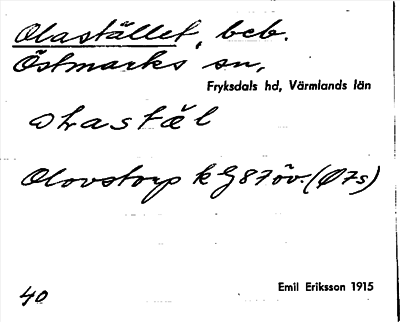 Olastället, beb.
Östmarks sn,
Fryksdals hd, Värmlands län
Olovstorp k G87öv. (Ø7s)
40
Emil Eriksson 1915